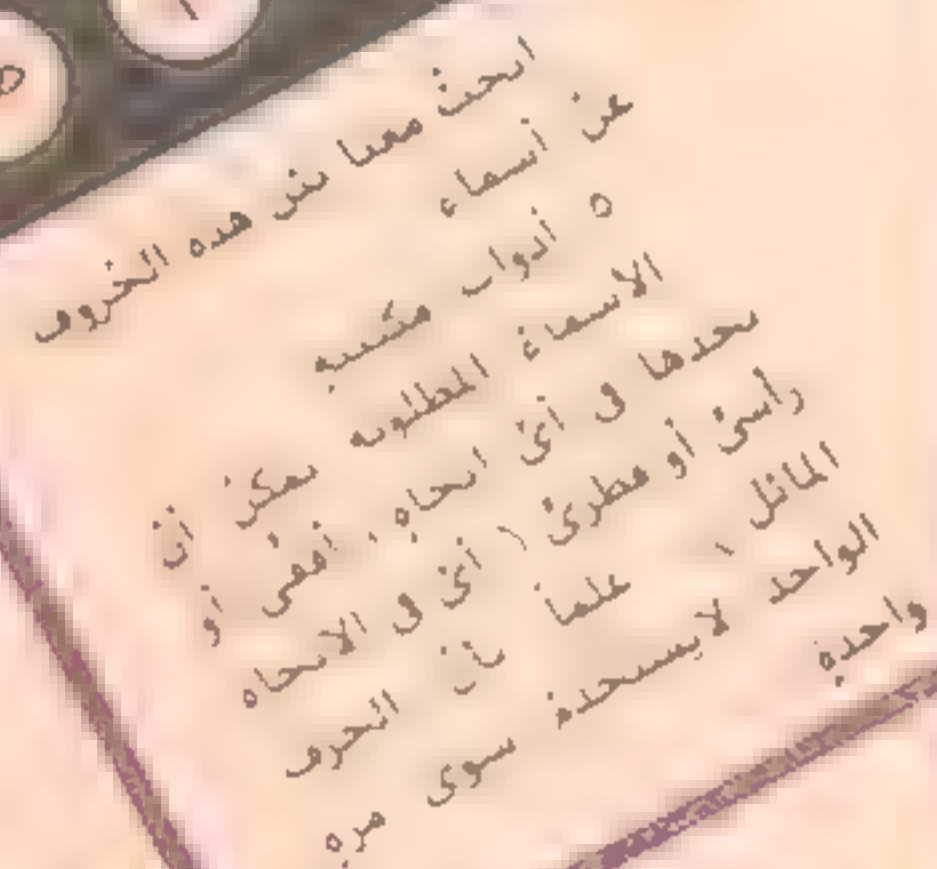 ابحث معنا بين هذه الحروف
عن أسماء
٥ أدوات مكتبية
الأسماء المطلوبة يمكن أن
تجدها في أى اتجاه، أفقى أو
رأسى أو قطرى ( أى في الاتجاه
المائل ) علماً بأن الحرف
الواحد لا يستخدم سوى مرة
واحدة